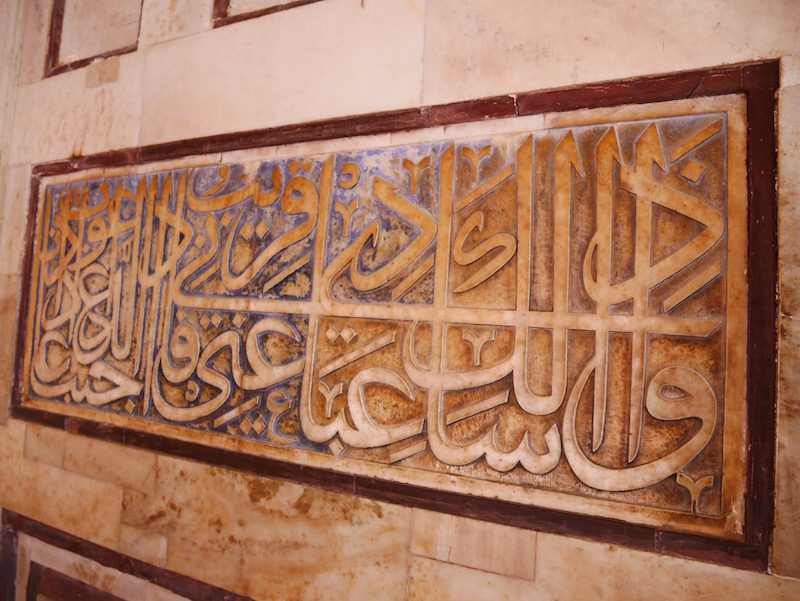 وإذا سألك عبادي عني فإني قريب أجيب دعوة الداع إذا